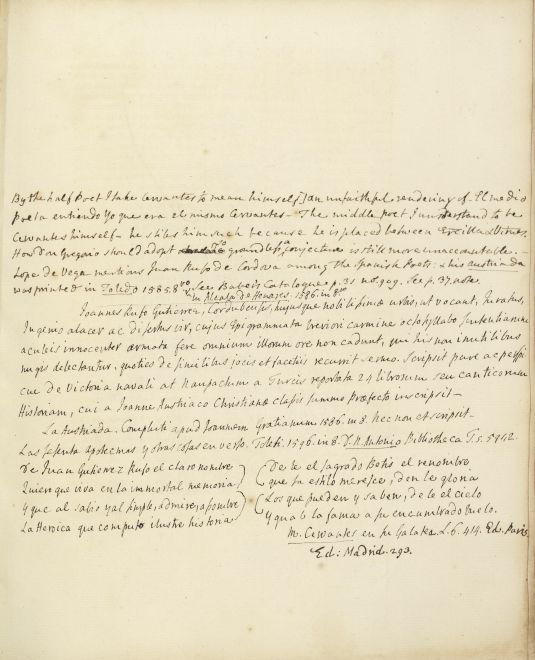 By the half Poet I take Cervantes to mean himself] an unfaithful rendering of - El medio
Poeta entiendo Yo que era el mismo Cervantes - The middle poet I understand to be
Cervantes himself - he stiles him such because he is placed between Ercilla & Virues.
How Don Gregorio should adopt so groundless a conjecture is still more unaccountable. -
Lope de Vega mentions Juan Rufo de Cordova among the Spanish Poets: & his austriada
was printed in Toledo 1585. 8vo See Catalogue p. 31 No. 909. See p. 37. note.
& in Alcala de Henares. 1586. in 8vo
Joannes Rufo Gutierrez, Cordubensis, hujusque nobilissimæ urbis, ut vocant, Juratus,
Ingenio alacer ac disertus vir, cujus Epigrammata breviori carmine octosyllabo sententiarum
aculeis innocenter armata fere omnium illorum ore non cadunt, qui his non inutilibus
nugis delectantur, quoties de similibus jocis et facetiis recurrit sermo. Scripsit pure ac perspi
cue de Victoria navali at Naupactum a Turcis reportata 24 librorum seu canticorum
Historiam, cui a Joanne Austriaco Christianæ classis summo præfecto inscripsit -
La Austriada. Compluti apud Joannem Gratianum 1586. in 8. hec non et scripsit -
Las seisenta apotecmas y otras cosas en verso. Toleti. 1596. in 8. V. N. Antonio Bibliotheca T. 1. 5942.
De Juan Gutierrez Rufo el claro nombre
Quiero que viva en la immortal memoria
Y que al sabio y al simple, admire, asombre
La Heroica que compuso ilustre historia
De le el sagrado Betis el renombre
que su estilo merece, denle gloria
Los que pueden y saben, de le el cielo
Ygual la fama a su encumbrado vuelo.
M. Cervantes en su Galatea. L. 6. 414. Ed. Paris.
Ed: Madrid. 293.